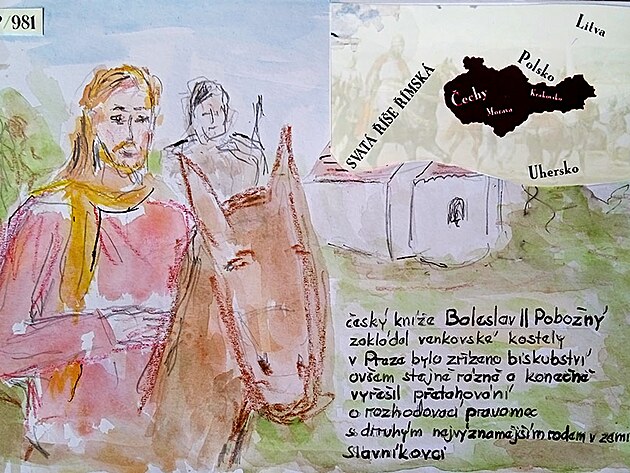 /981
Litva
Polsko
Krakovsko
Čechy
Morava
SVATÁ ŘÍŠE ŘÍMSKÁ
Uhersko
český kníže Boleslav II Pobožný
zakládal venkovské kostely
v Praze bylo zřízeno biskubství
ovšem stejně rázně a konečně
vyřešil přetahování
o rozhodovací pravomoc
s druhým nejvýznamějším rodem v zemi
Slavníkovci